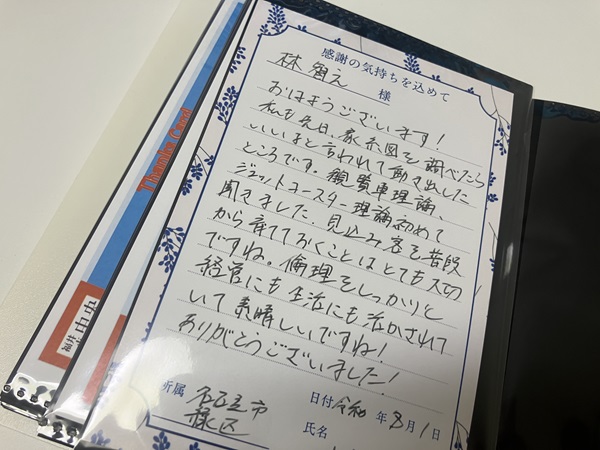 感謝の気持ちを込めて
林 智之 様
おはようございます！
私も先日、家系図を調べたら
いいよと言われて動き出した
ところです。観覧車理論、
ジェットコースター理論初めて
聞きました。見込み客を普段
から育てておくことはとても大切
ですね。倫理をしっかりと
経営にも生活にも活かされて
いて素晴しいですね！
ありがとうございました！
所属 名古屋市
緑区
日付 令和 年 8月1日
氏名
Thanks Card